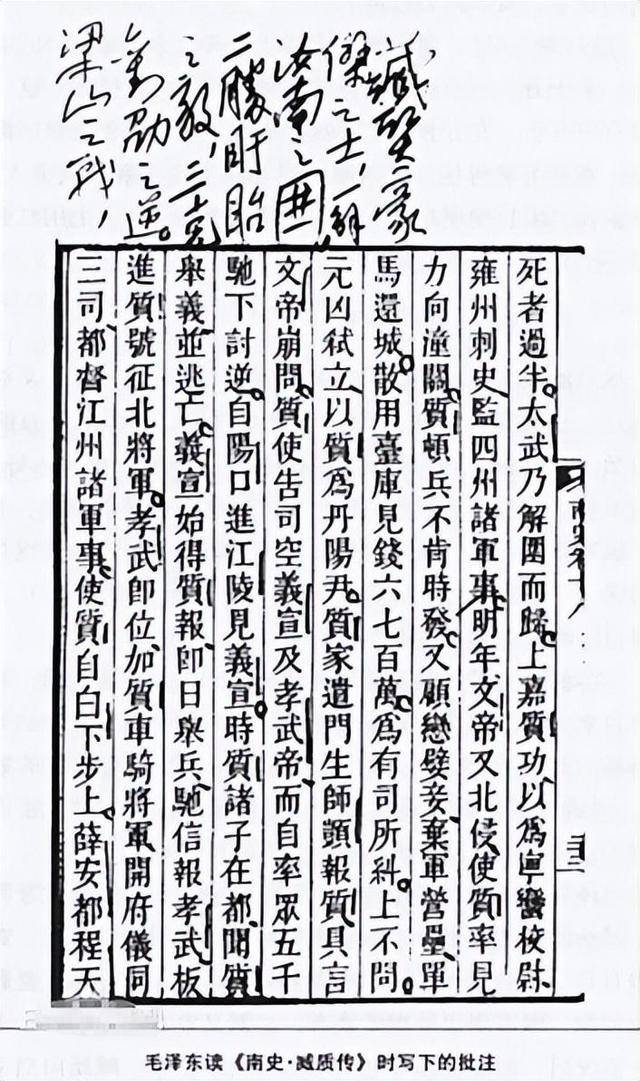 臧質豪
傑之士一解
汝南之围
二勝盱眙
之敌，三克
劉劭之逆。
梁山之战
死者過半太武乃解圍而歸上嘉質功以爲寧蠻校尉
雍州刺史監四州諸軍事明年文帝又北侵使質率見
力向潼關質頓兵不肯時發又顧戀嬖妾棄軍營壘單
馬還城散用臺庫見錢六七百萬爲有司所糾上不問
元凶弒立以質爲丹陽尹質家遣門生師顗報質具言
文帝崩問質使告司空義宣及孝武帝而自率眾五千
馳下討逆自陽口進江陵見義宣時質諸子在都聞質
舉義並逃亡義宣始得質報即日舉兵馳信報孝武板
進質號征北將軍孝武即位加質車騎將軍開府儀同
三司都督江州諸軍事使質自白下步上薛安都程天
毛泽东读《南史·臧质传》时写下的批注